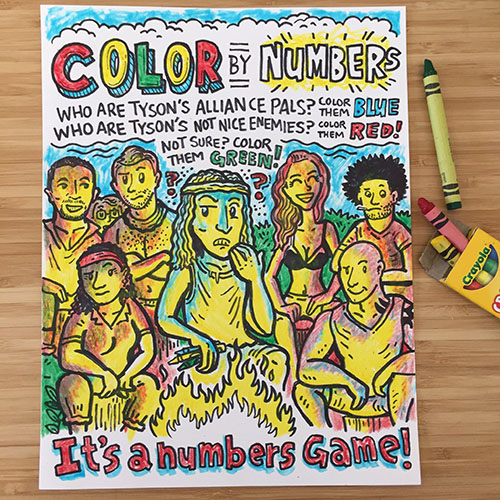 COLOR BY NUMBERS
WHO ARE TYSON'S ALLIANCE PALS? COLOR THEM BLUE
WHO ARE TYSON'S NOT NICE ENEMIES? COLOR THEM RED!
NOT SURE? COLOR
THEM GREEN!
? ?
It's a numbers Game!
Crayola